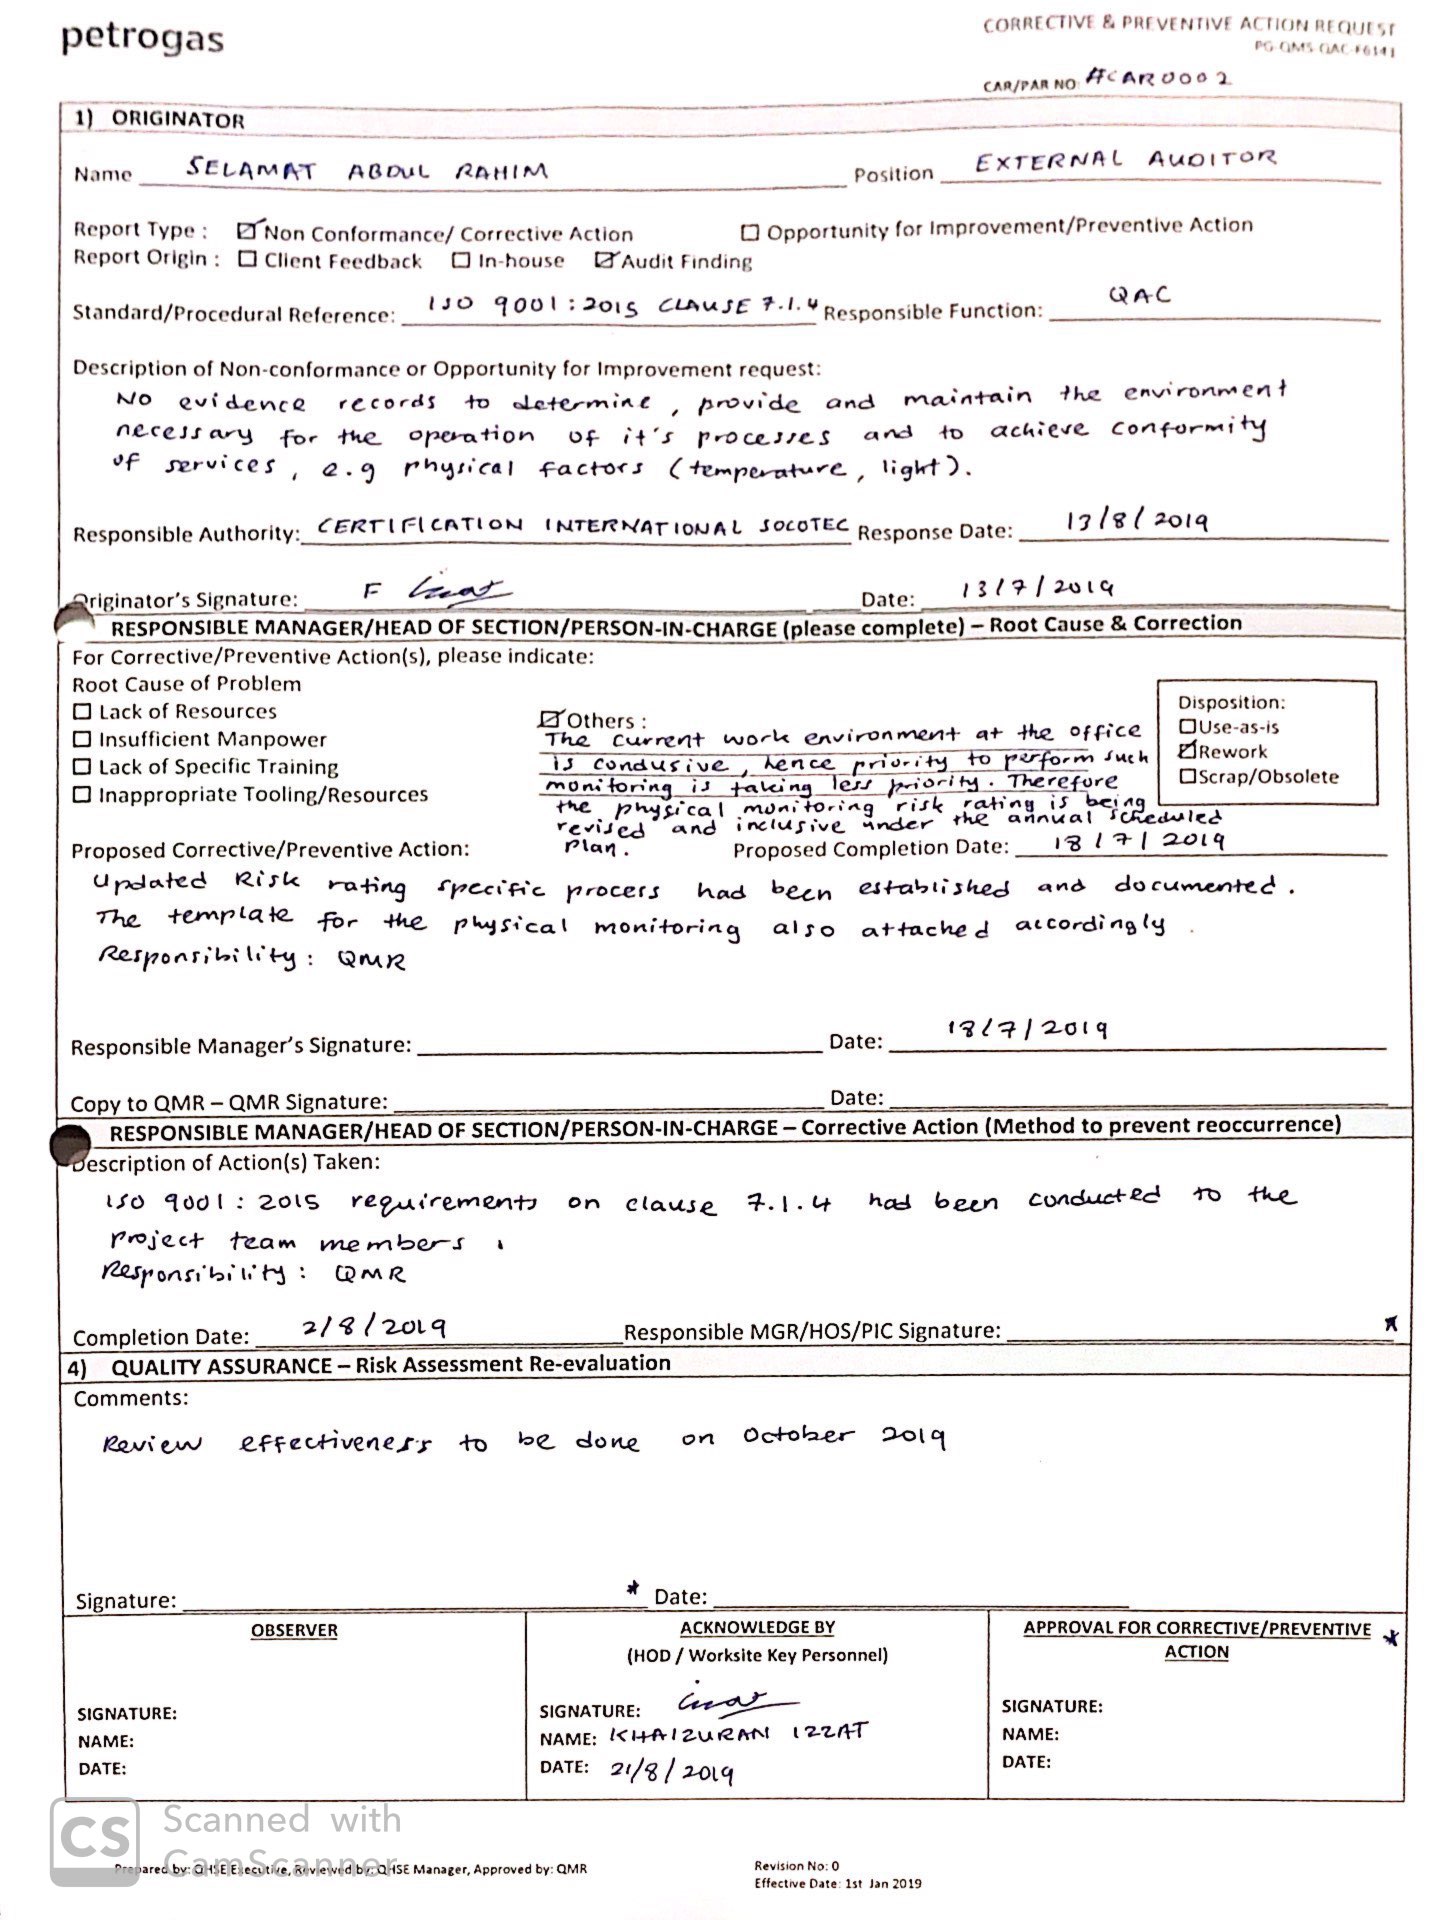 petrogas
CORRECTIVE & PREVENTIVE ACTION REQUEST
PG-QMS-QAC-F6141
CAR/PAR NO: #CAR0002
1) ORIGINATOR
Name SELAMAT ABDUL RAHIM Position EXTERNAL AUDITOR
Report Type : ☑ Non Conformance/ Corrective Action ☐ Opportunity for Improvement/Preventive Action
Report Origin : ☐ Client Feedback ☐ In-house ☑ Audit Finding
Standard/Procedural Reference: ISO 9001:2015 CLAUSE 7.1.4 Responsible Function: QAC
Description of Non-conformance or Opportunity for Improvement request:
No evidence records to determine, provide and maintain the environment
necessary for the operation of it's processes and to achieve conformity
of services, e.g physical factors (temperature, light).
Responsible Authority: CERTIFICATION INTERNATIONAL SOCOTEC Response Date: 13/8/2019
Originator's Signature: F Date: 13/7/2019
RESPONSIBLE MANAGER/HEAD OF SECTION/PERSON-IN-CHARGE (please complete) – Root Cause & Correction
For Corrective/Preventive Action(s), please indicate:
Root Cause of Problem
☐ Lack of Resources
☐ Insufficient Manpower
☐ Lack of Specific Training
☐ Inappropriate Tooling/Resources
☑ Others :
The current work environment at the office
is condusive, hence priority to perform such
monitoring is taking less priority. Therefore
the physical monitoring risk rating is being
revised and inclusive under the annual scheduled
plan.
Disposition:
☐ Use-as-is
☑ Rework
☐ Scrap/Obsolete
Proposed Corrective/Preventive Action: Proposed Completion Date: 18/7/2019
Updated Risk rating specific process had been established and documented.
The template for the physical monitoring also attached accordingly.
Responsibility: QMR
Responsible Manager's Signature: Date: 18/7/2019
Copy to QMR – QMR Signature: Date:
RESPONSIBLE MANAGER/HEAD OF SECTION/PERSON-IN-CHARGE – Corrective Action (Method to prevent reoccurrence)
Description of Action(s) Taken:
ISO 9001:2015 requirements on clause 7.1.4 had been conducted to the
project team members.
Responsibility: QMR
Completion Date: 2/8/2019 Responsible MGR/HOS/PIC Signature: *
4) QUALITY ASSURANCE – Risk Assessment Re-evaluation
Comments:
Review effectiveness to be done on October 2019
Signature: * Date:
OBSERVER
SIGNATURE:
NAME:
DATE:
ACKNOWLEDGE BY
(HOD / Worksite Key Personnel)
SIGNATURE:
NAME: KHAIZURAN IZZAT
DATE: 21/8/2019
APPROVAL FOR CORRECTIVE/PREVENTIVE *
ACTION
SIGNATURE:
NAME:
DATE:
CS Scanned with
CamScanner
Prepared by: QHSE Executive, Reviewed by: QHSE Manager, Approved by: QMR
Revision No: 0
Effective Date: 1st Jan 2019